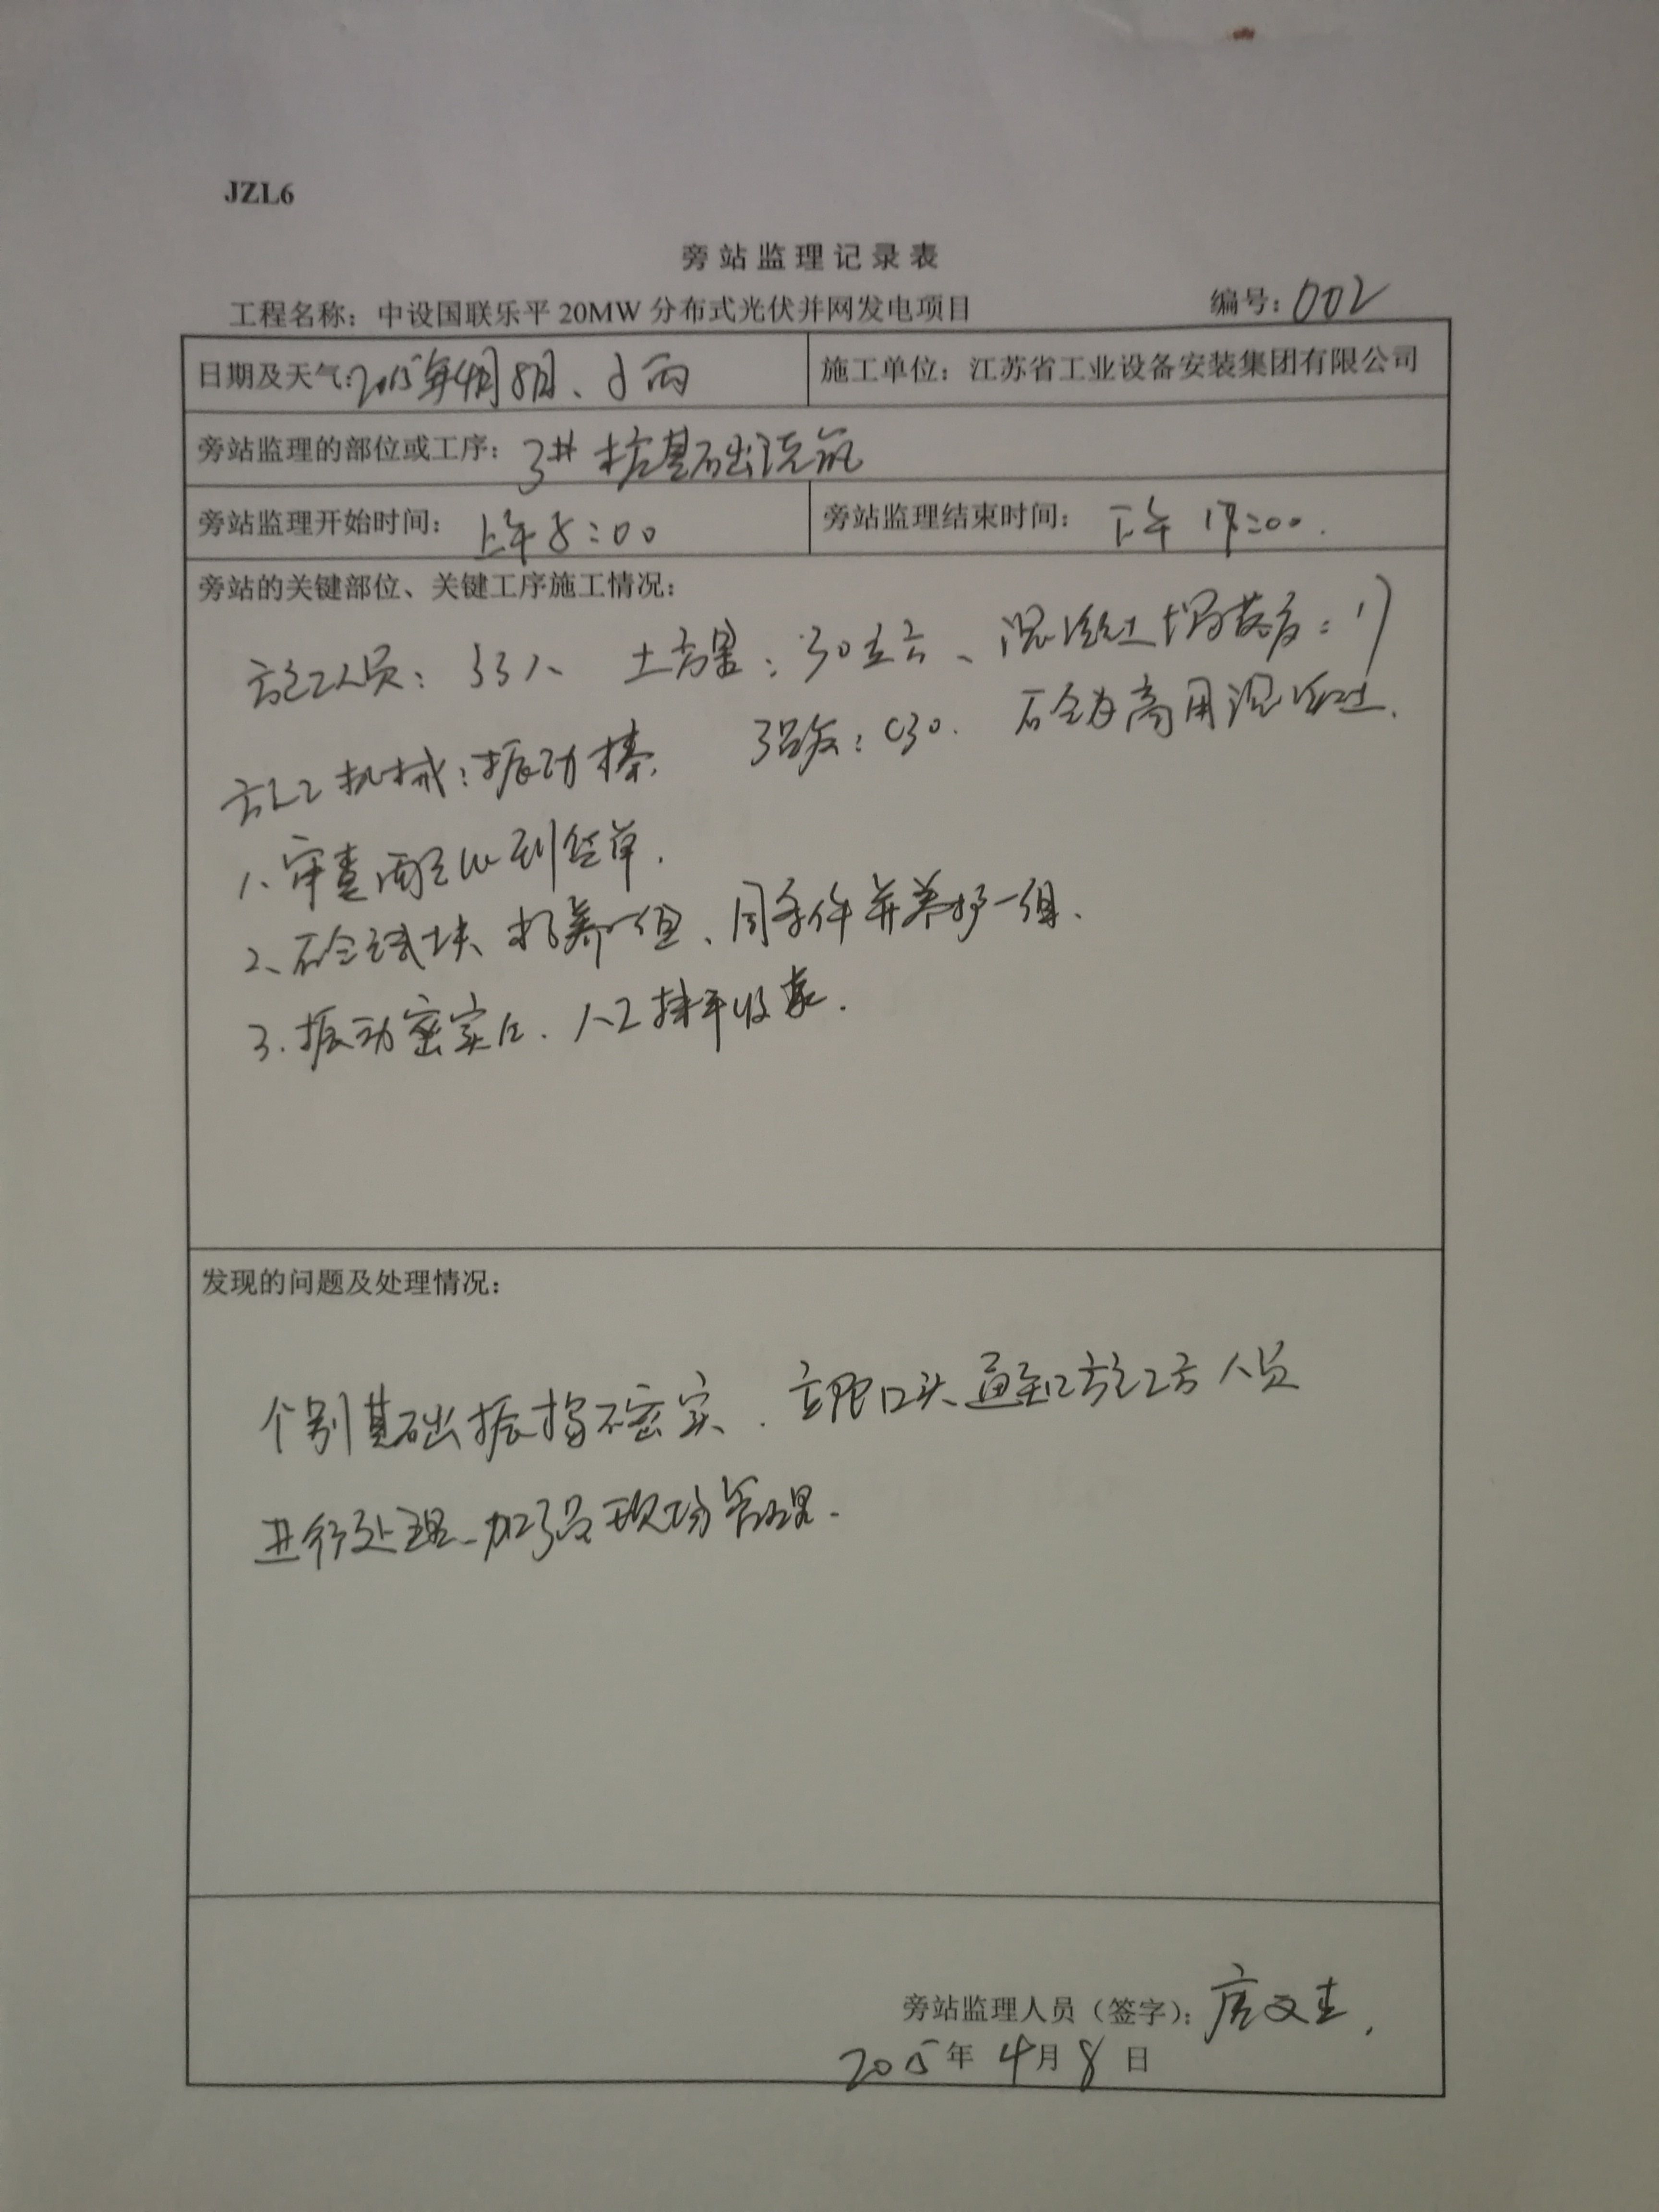 JZL6
旁站监理记录表
工程名称：中设国联乐平 20MW 分布式光伏并网发电项目 编号：002
日期及天气：2015年4月8日、小雨 施工单位：江苏省工业设备安装集团有限公司
旁站监理的部位或工序：3#桩基础浇筑
旁站监理开始时间：上午8:00 旁站监理结束时间：下午17:00.
旁站的关键部位、关键工序施工情况：
施工人员：33人 土方量：30立方、混凝土塌落度：
施工机械：振动棒. 强度：C30. 砼为商用混凝土.
1、审查配比到签单.
2、砼试块、标养一组、同条件并养护一组、
3.振动密实后、人工抹平收浆.
发现的问题及处理情况：
个别基础振捣不密实、立即口头通知施工方人员
进行处理、加强现场管理.
旁站监理人员（签字）：唐文
2015年 4月 8日